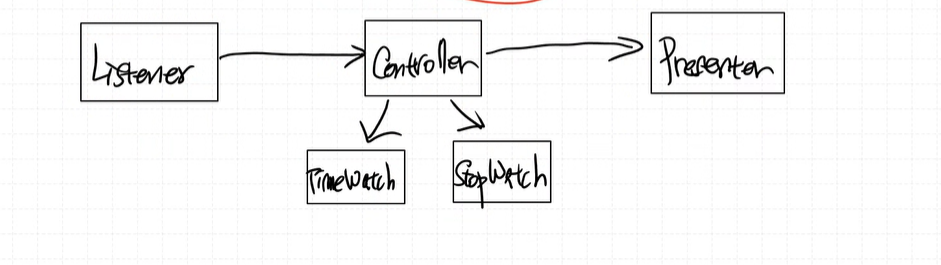 Listener
Controller
Presenter
TimeWatch
StopWatch